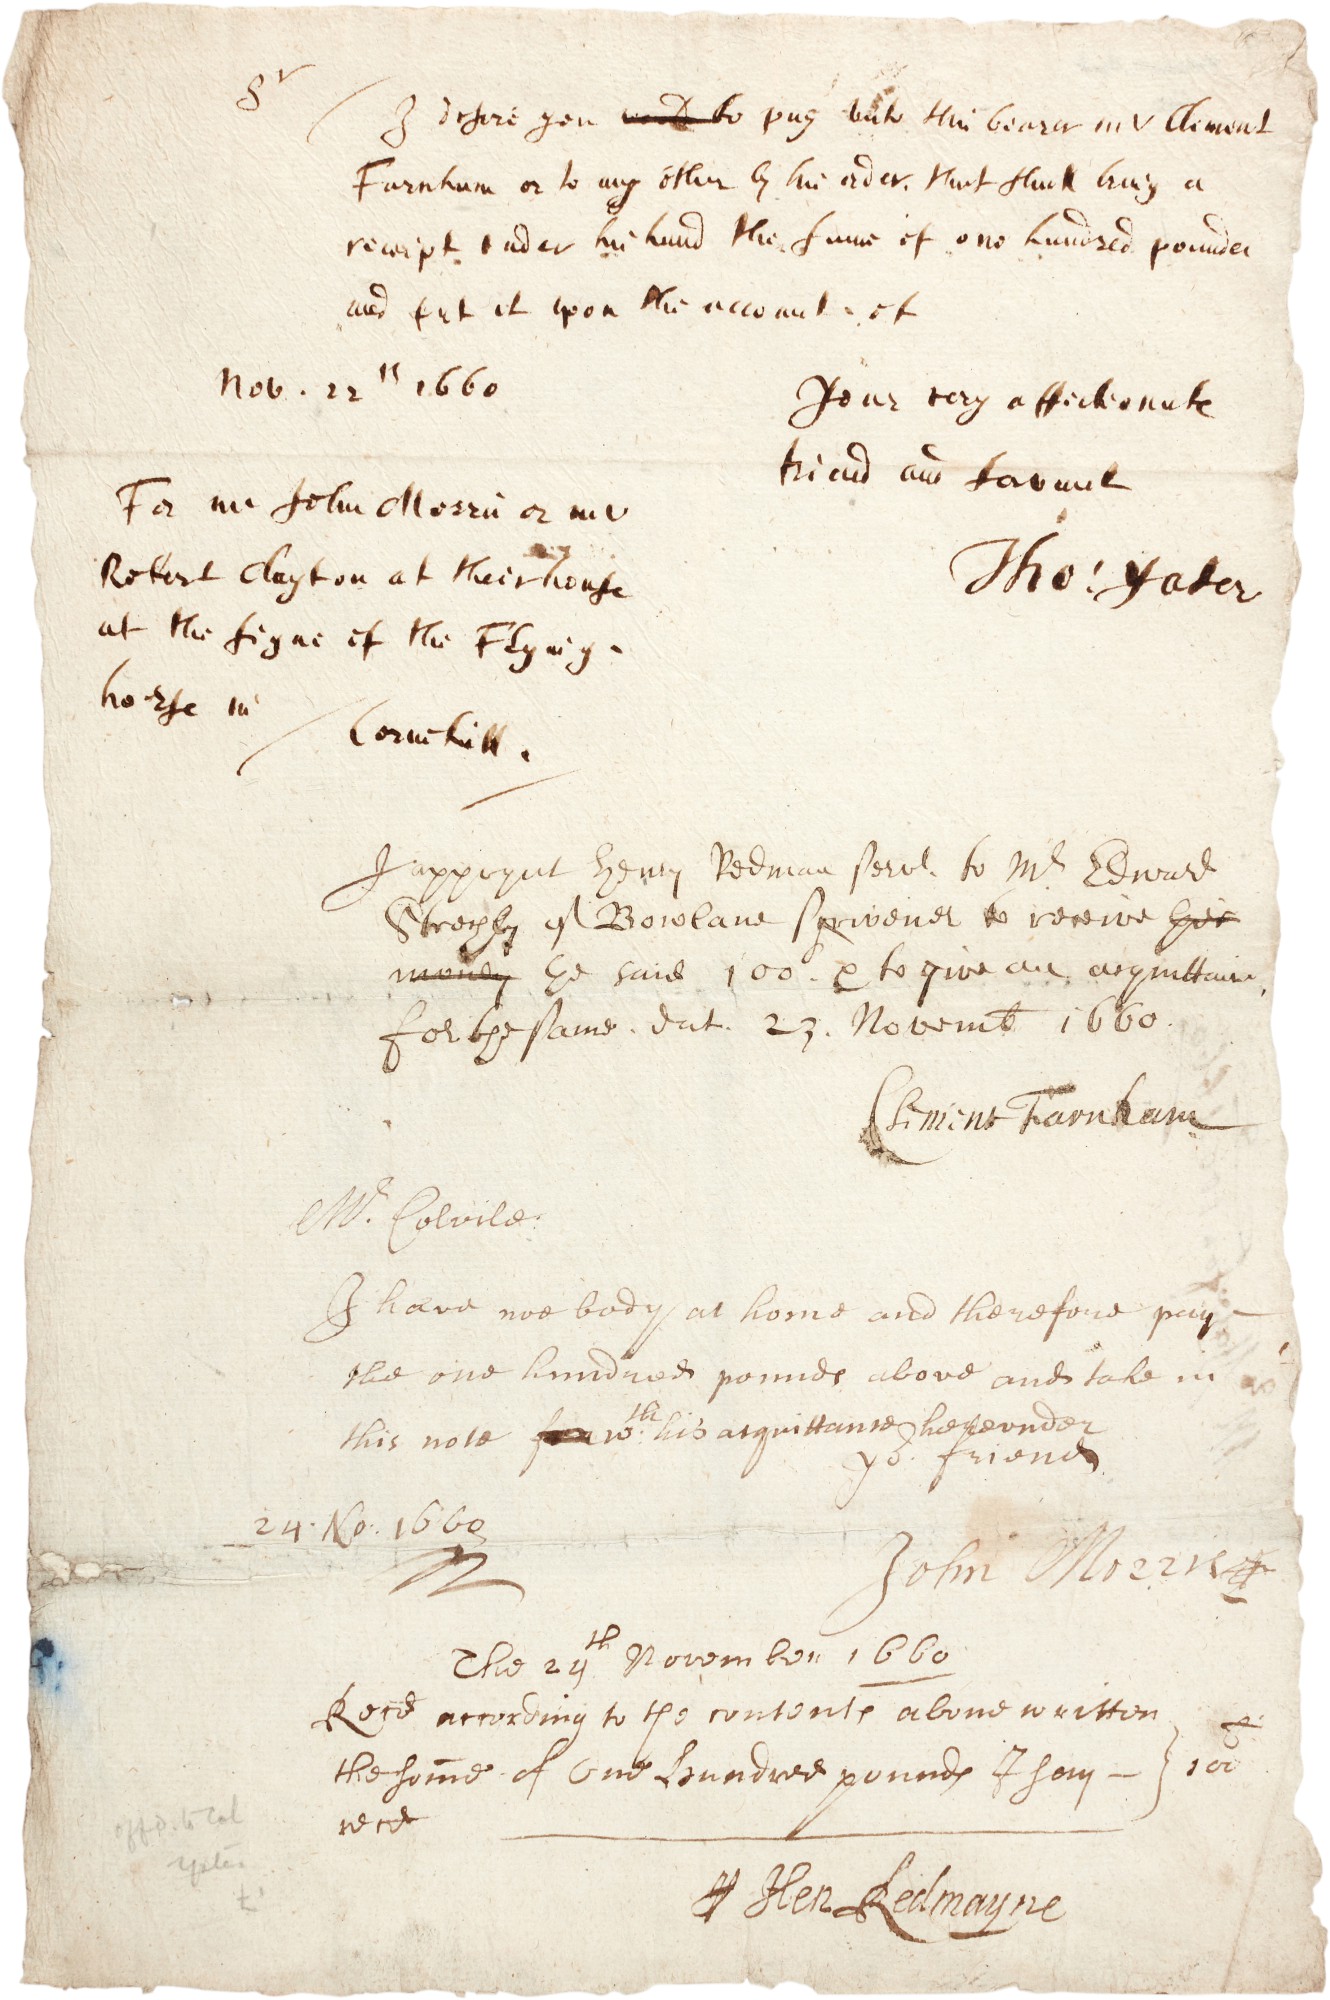 Sr
I desire you to pay unto this bearer mr Clement
Farnham or to any other by his order, that shall bring a
receipt under his hand the sume of one hundred pounds
and put it upon the account of
Nov. 22th 1660
Your very affectionate
friend and servant
Tho: Yates
For mr John Morris or mr
Robert Clayton at their house
at the signe of the Flying
horse in
Cornehill.
I appoynt Henry Redman servt. to Mr Edward
of Bowlane Scrivener to receive his
money the said 100 £ to give an acquittance
for the same. dat. 23. Novemb 1660.
Clement Farnham
Mr. Colvile:
I have noe body at home and therefore pay
the one hundred pounds above and take in
this note wth. his acquittance hereunder
yor. friend
24. No. 1660
John Morris
The 24th November 1660
Recd according to the contents above written
the some of One Hundred pounds I say — } 100£
recd
Hen Redmayne